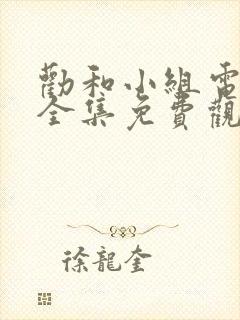 勸和小組電
全集免費觀
徐龍奎